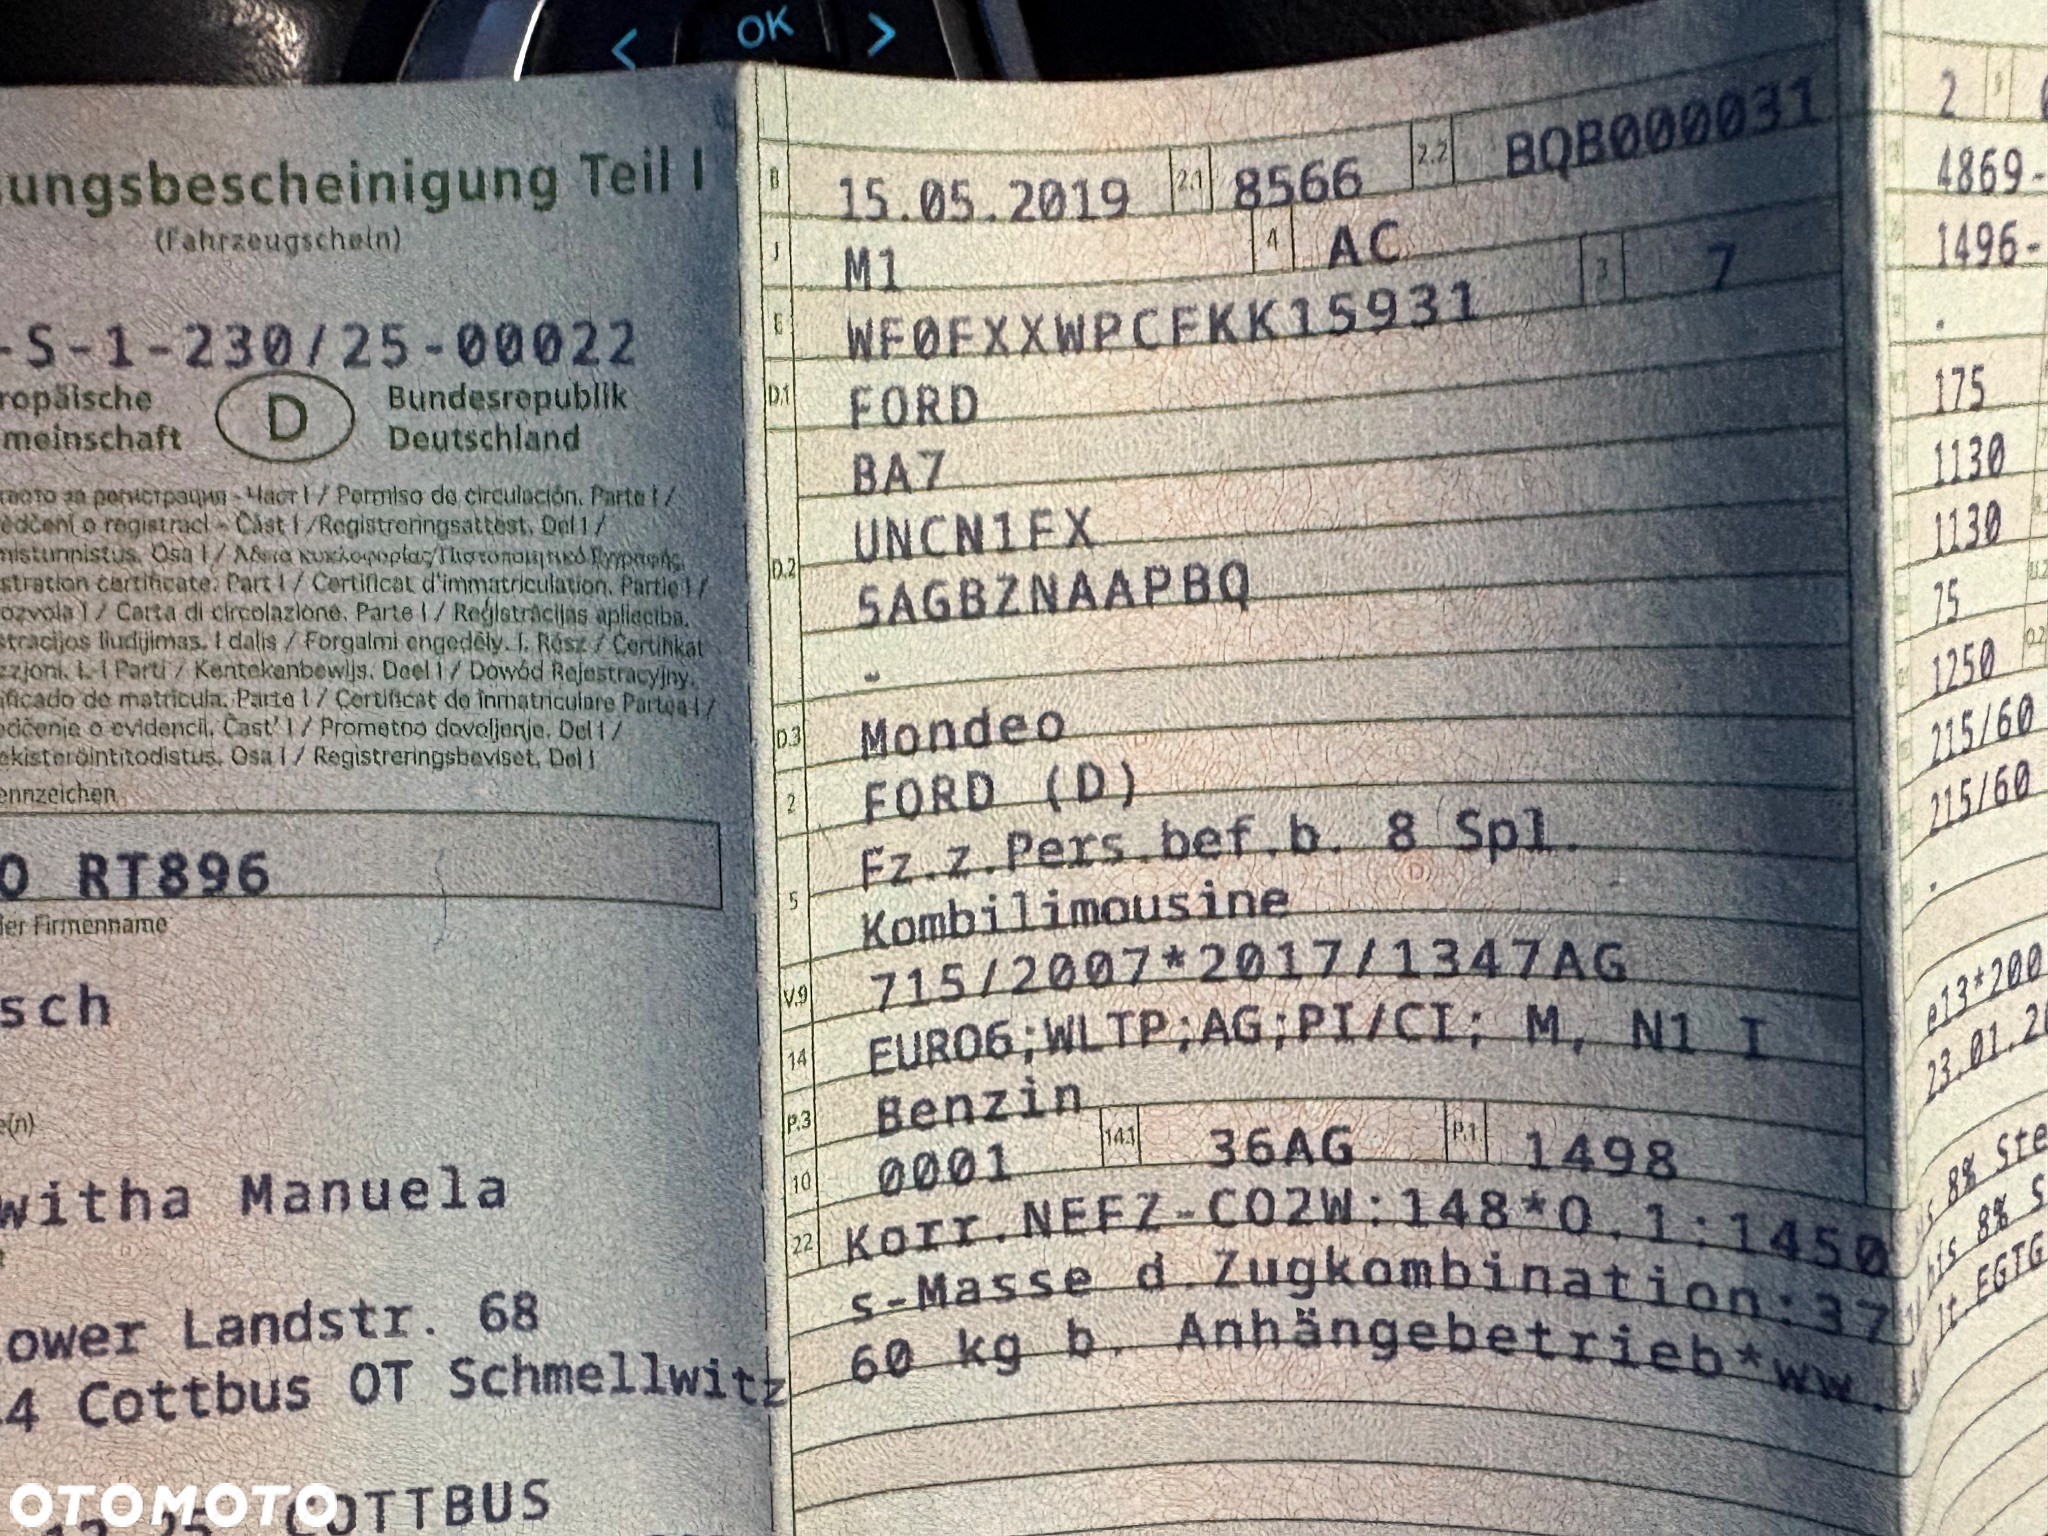 < OK >
ungsbescheinigung Teil I
(Fahrzeugschein)
-S-1-230/25-00022
ropäische
meinschaft
D
Bundesrepublik
Deutschland
Permiso de circulación. Parte I /
Část I / Registreringsattest. Del I /
Osa I /
stration certificate. Part I / Certificat d'immatriculation. Partie I /
Carta di circolazione. Parte I / Reģistrācijas apliecība.
I dalis / Forgalmi engedély. I. Rész / Ċertifikat
I-I Parti / Kentekenbewijs. Deel I / Dowód Rejestracyjny.
ificado de matrícula. Parte I / Certificat de înmatriculare Partea I /
o evidencii. Časť I / Prometno dovoljenje. Del I /
Osa I / Registreringsbeviset. Del I
ennzeichen
O RT896
der Firmenname
sch
e(n)
witha Manuela
ower Landstr. 68
4 Cottbus OT Schmellwitz
COTTBUS
B 15.05.2019 2.1 8566 2.2 BQB000031
J M1 4 AC
E WF0FXXWPCFKK15931 3 7
D.1 FORD
BA7
D.2 UNCN1FX
5AGBZNAAPBQ
-
D.3 Mondeo
2 FORD (D)
5 Fz.z.Pers.bef.b. 8 Spl.
Kombilimousine
V.9 715/2007*2017/1347AG
14 EURO6;WLTP;AG;PI/CI; M, N1 I
P.3 Benzin
10 0001 14.1 36AG P.1 1498
22 Korr.NEFZ-CO2W:148*O.1:1450
s-Masse d.Zugkombination:37
60 kg b. Anhängebetrieb*ww.
2
4869-
1496-
.
175
1130
1130
75
1250
215/60
215/60
.
e13*200
23.01.20
8% Ste
bis 8% S
lt EGTG
OTOMOTO